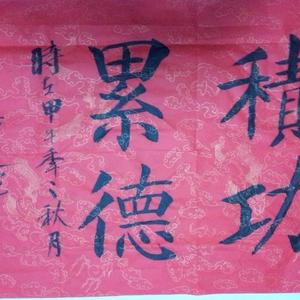 積功
累德
時在甲午季秋月